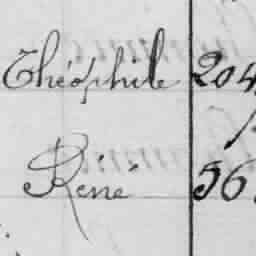 Théophile 204
Réné 56